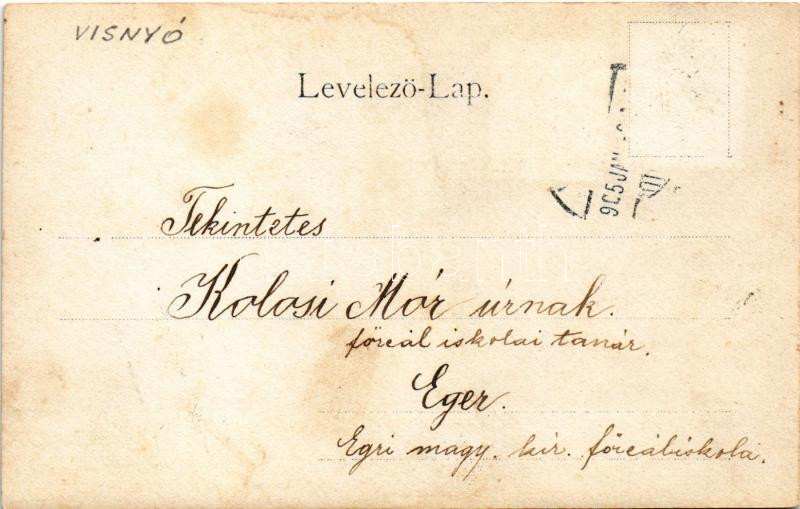 VISNYÓ
Levelező-Lap.
905 JAN
Tekintetes
Kolosi Mór úrnak.
főreál iskolai tanár.
Eger.
Egri magy. kir. főreáliskola.